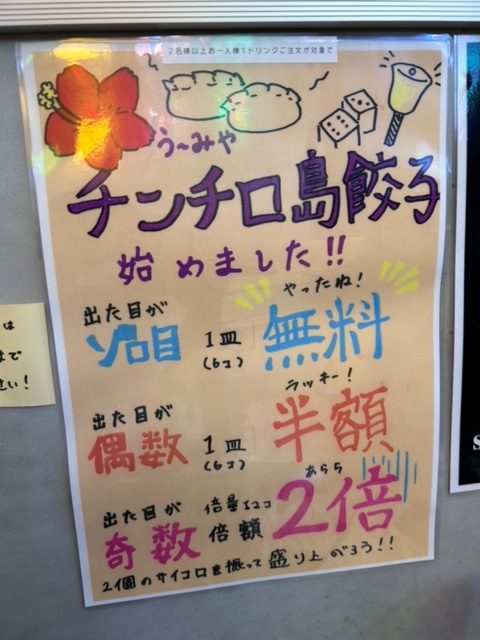 ２名様以上お一人様１ドリンクご注文が対象で
う～みや
チンチロ島餃子
始めました!!
やったね!
出た目が
ゾロ目 1皿(6コ) 無料
ラッキー!
出た目が
偶数 1皿(6コ) 半額
あらら
出た目が
奇数 倍量12コ 倍額 2倍
2個のサイコロを振って盛り上がろう!!
は
まで
せい!
S